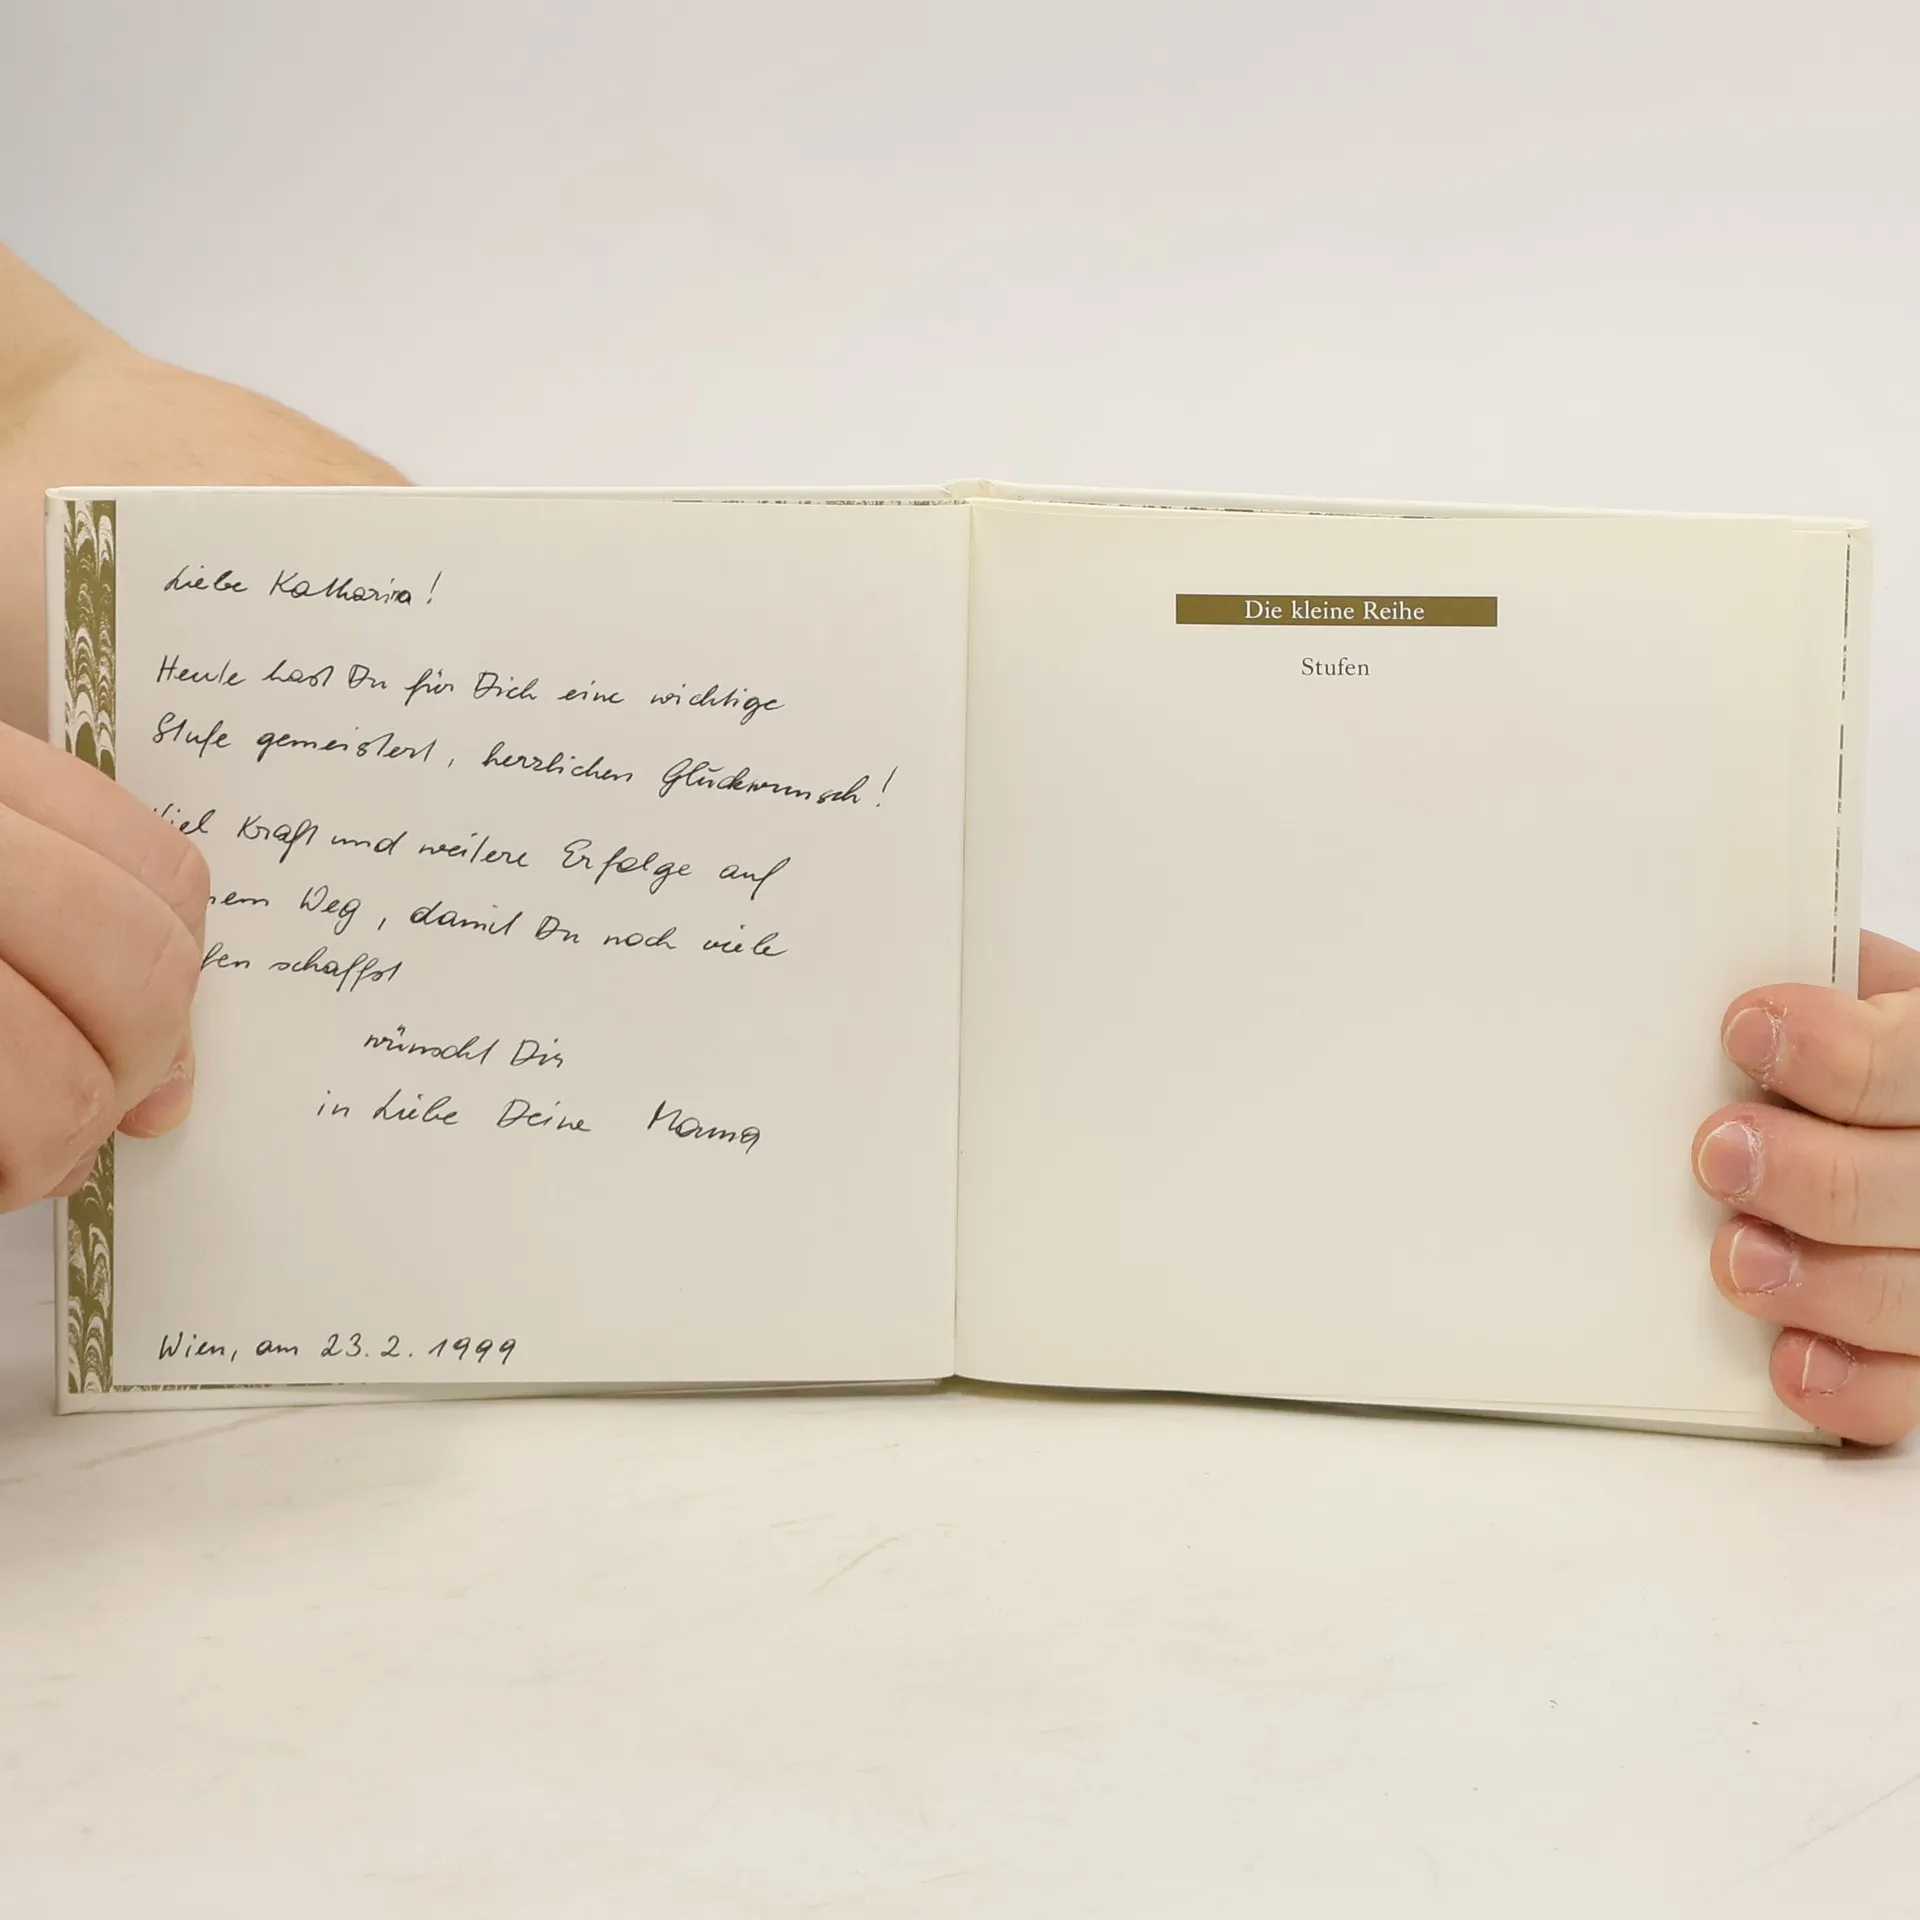 Liebe Katharina!
Heute hast Du für Dich eine wichtige
Stufe gemeistert, herzlichen Glückwunsch!
Viel Kraft und weitere Erfolge auf
nem Weg, damit Du noch viele
fen schaffst
wünscht Dir
in Liebe Deine Mama
Wien, am 23.2.1999
Die kleine Reihe
Stufen